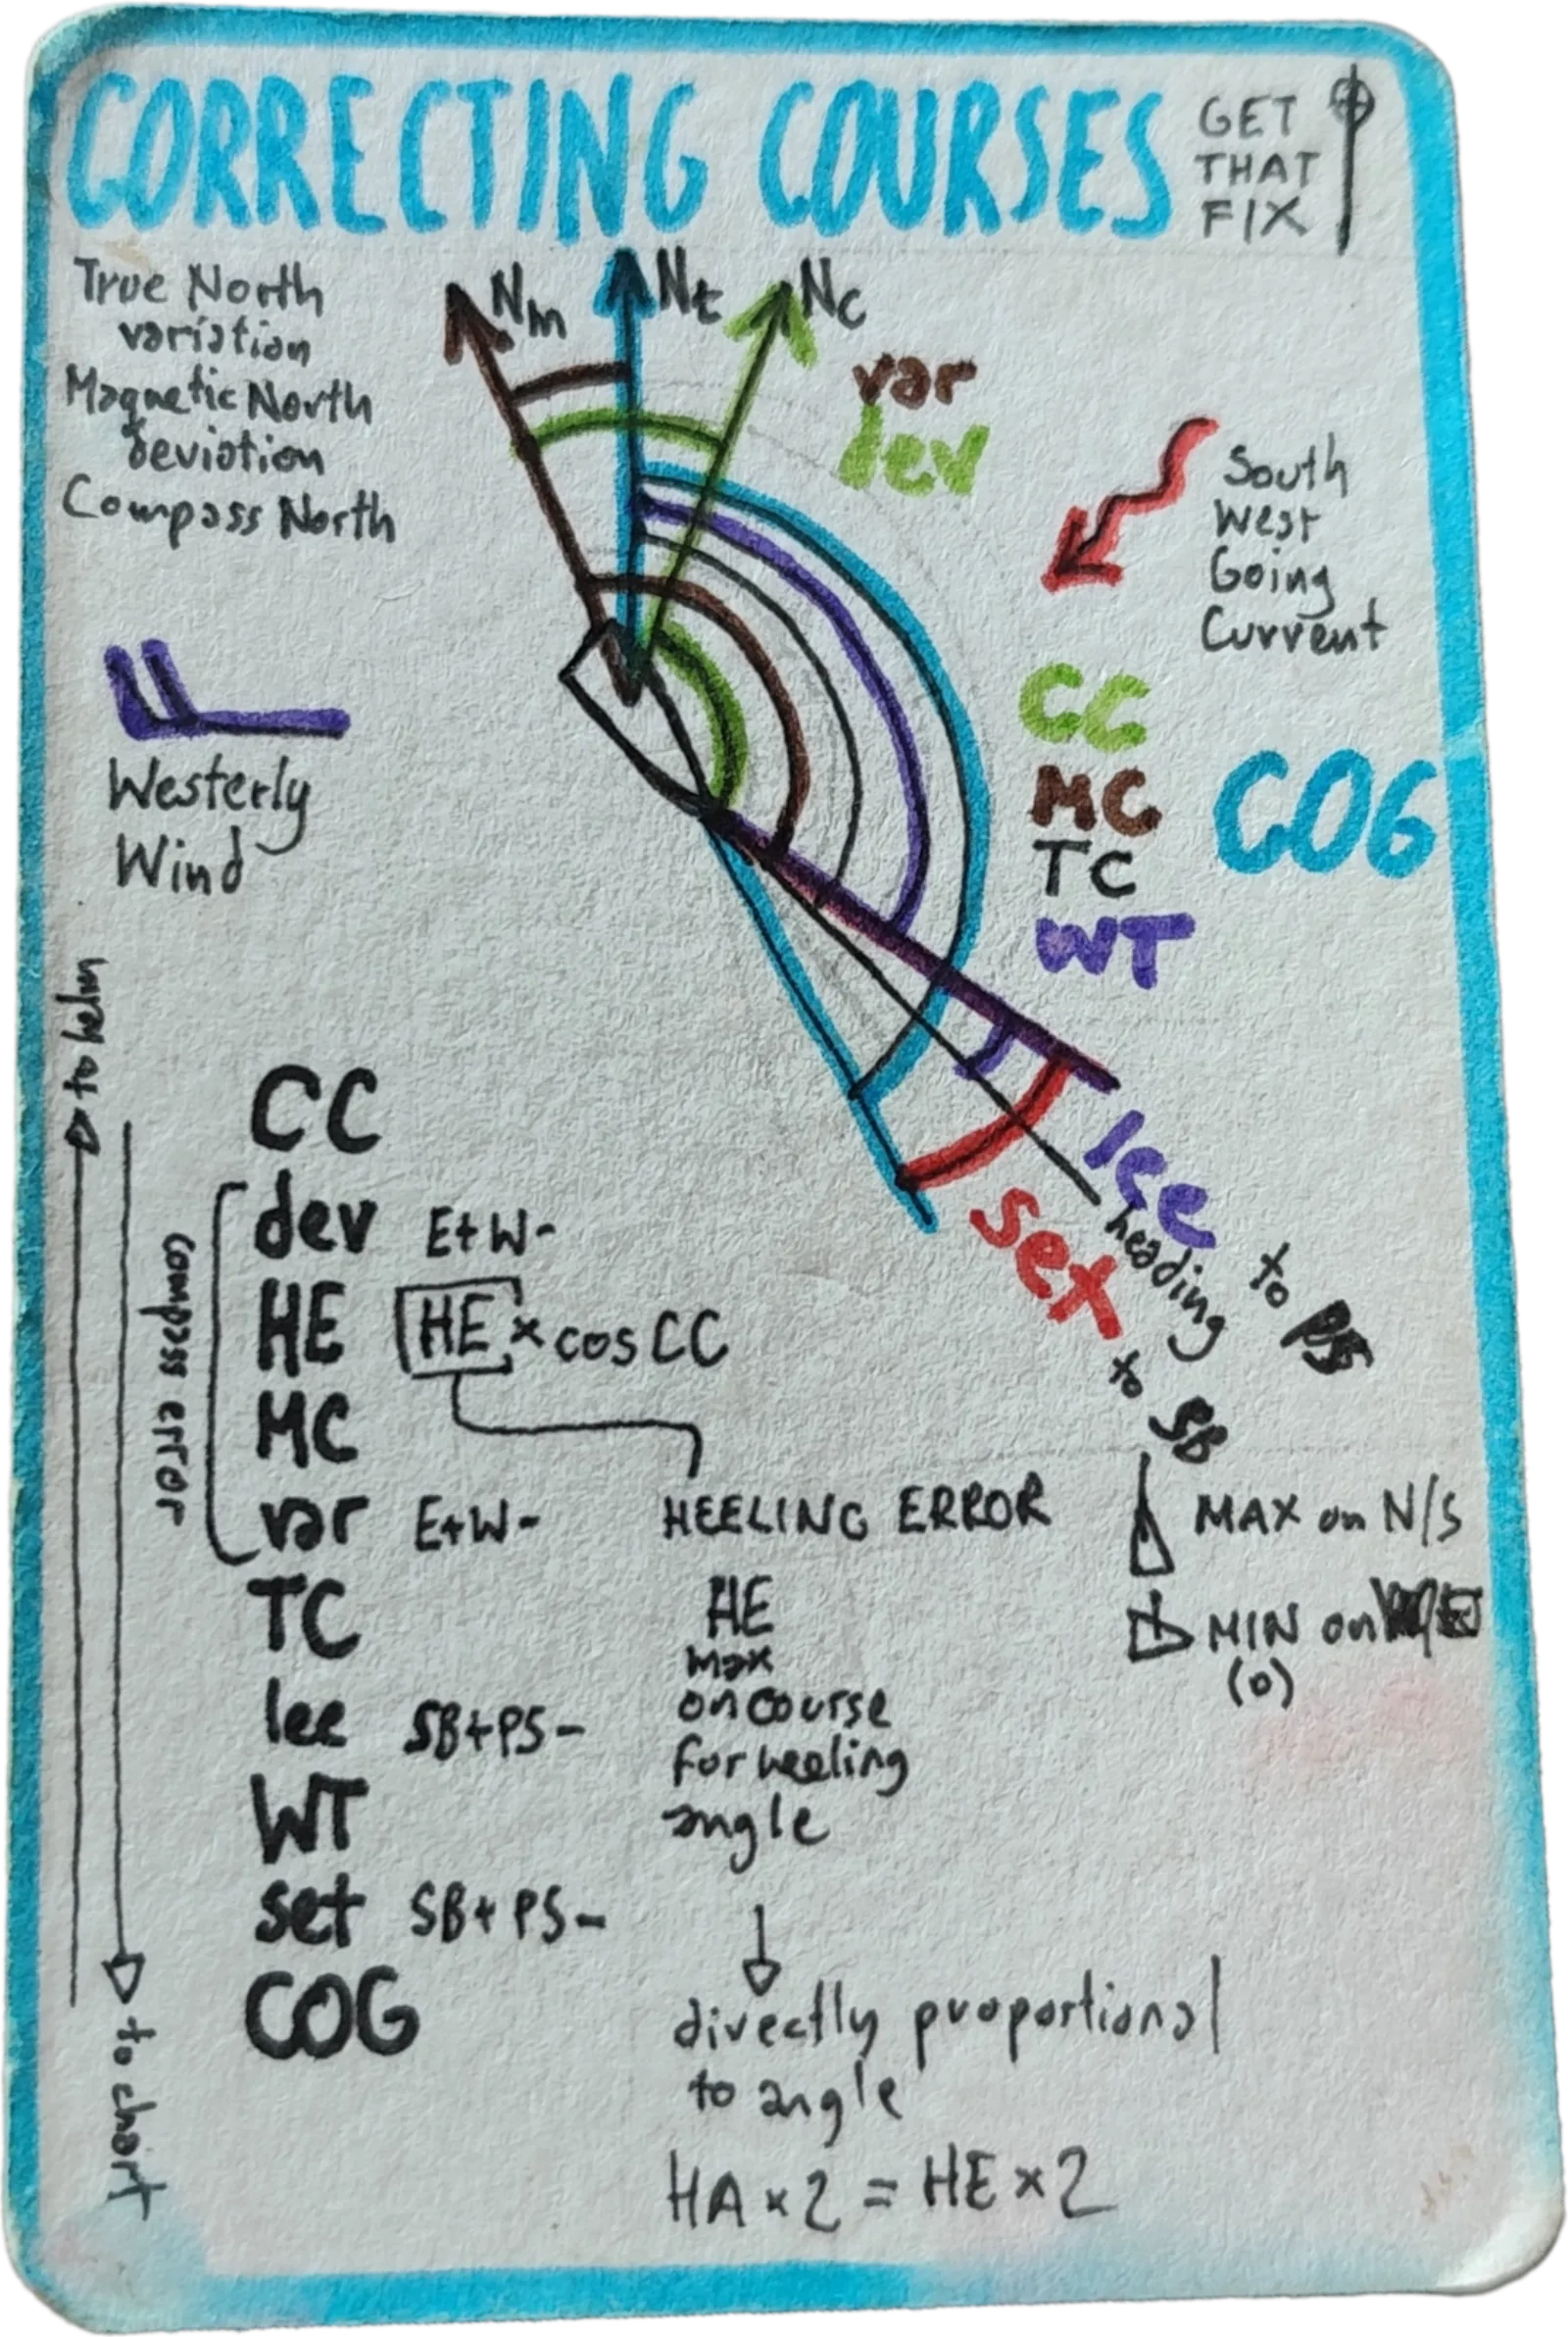 CORRECTING COURSES
GET
THAT
FIX
True North
variation
Magnetic North
deviation
Compass North
Nm
Nt
Nc
var
dev
South
West
Going
Current
Westerly
Wind
CC
MC
TC
WT
COG
lee
heading
set
to PS
to SB
to helm
to chart
compass error
CC
dev E+W-
HE HE x cos CC
MC
var E+W-
TC
lee SB+PS-
WT
set SB+PS-
COG
HEELING ERROR
HE
max
on course
for heeling
angle
directly proportional
to angle
HA x 2 = HE x 2
MAX on N/S
MIN on
(0)